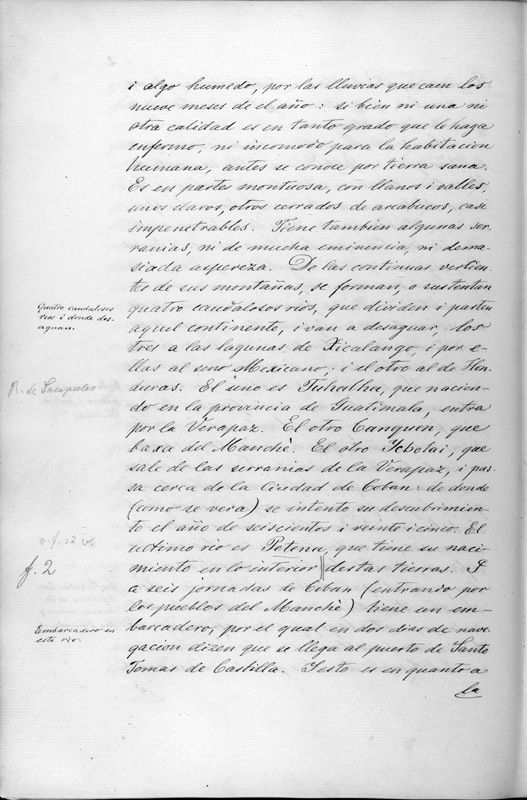 i algo humedo, por las lluvias que caen los
nueve meses de el año: si bien ni una ni
otra calidad es en tanto grado que le haga
enfermo, ni incomodo para la habitacion
humana, antes se conoce por tierra sana.
Es en partes montuosa, con llanos i valles,
unos claros, otros cerrados de arcabucos, casi
impenetrables. Tiene tambien algunas ser-
ranias, ni de mucha eminencia, ni dema-
siada aspereza. De las continuas vertien-
tes de sus montañas, se forman, o sustentan
Quatro caudalosos
rios i donde des-
aguan.
quatro caudalosos rios, que dividen i parten
aquel continente, i van a desaguar, los
tres a las lagunas de Xicalango, i por e-
llas al seno Mexicano; i el otro al de Hon-
duras. El uno es Tuhalha, que nacien-
R. de Sacapulas
do en la provincia de Guatimala, entra
por la Verapaz. El otro Canquen, que
baxa del Manchè. El otro Icbolai, que
sale de las serranias de la Verapaz, i pas-
sa cerca de la Ciudad de Coban: de donde
(como se vera) se intento su descubrimien-
to el año de seiscientos i veinte i cinco. El
v. f. 12 v.
ultimo rio es Petena, que tiene su naci-
f. 2
miento en lo interior destas tierras. I
a seis jornadas de Coban (entrando por
los pueblos del Manchè) tiene un em-
Embarcadero en
este rio.
barcadero, por el qual en dos dias de nave-
gacion dizen que se llega al puerto de Santo
Tomas de Castilla. I esto es en quanto a
la